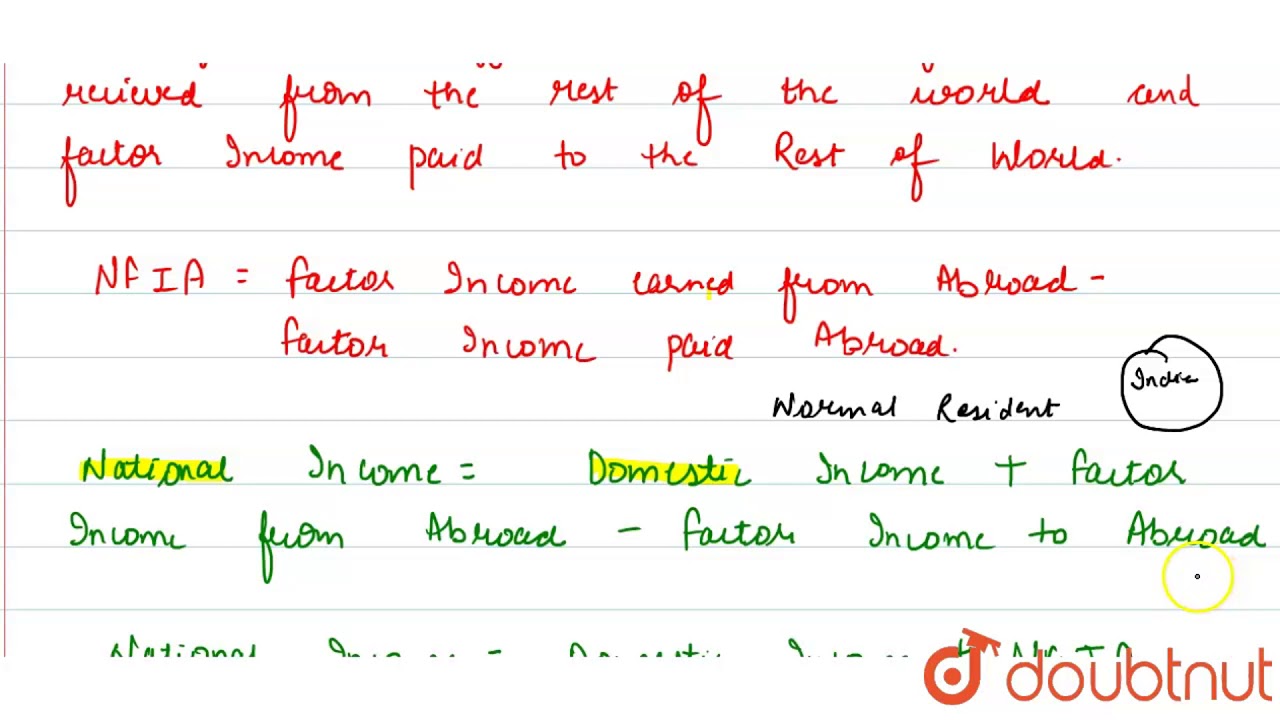 recieved from the rest of the world and
factor Income paid to the Rest of World.
NFIA = factor Income earned from Abroad -
factor Income paid Abroad.
India
Normal Resident
National Income = Domestic Income + factor
Income from Abroad - factor Income to Abroad
National Income = Domestic Income + NFIA
doubtnut